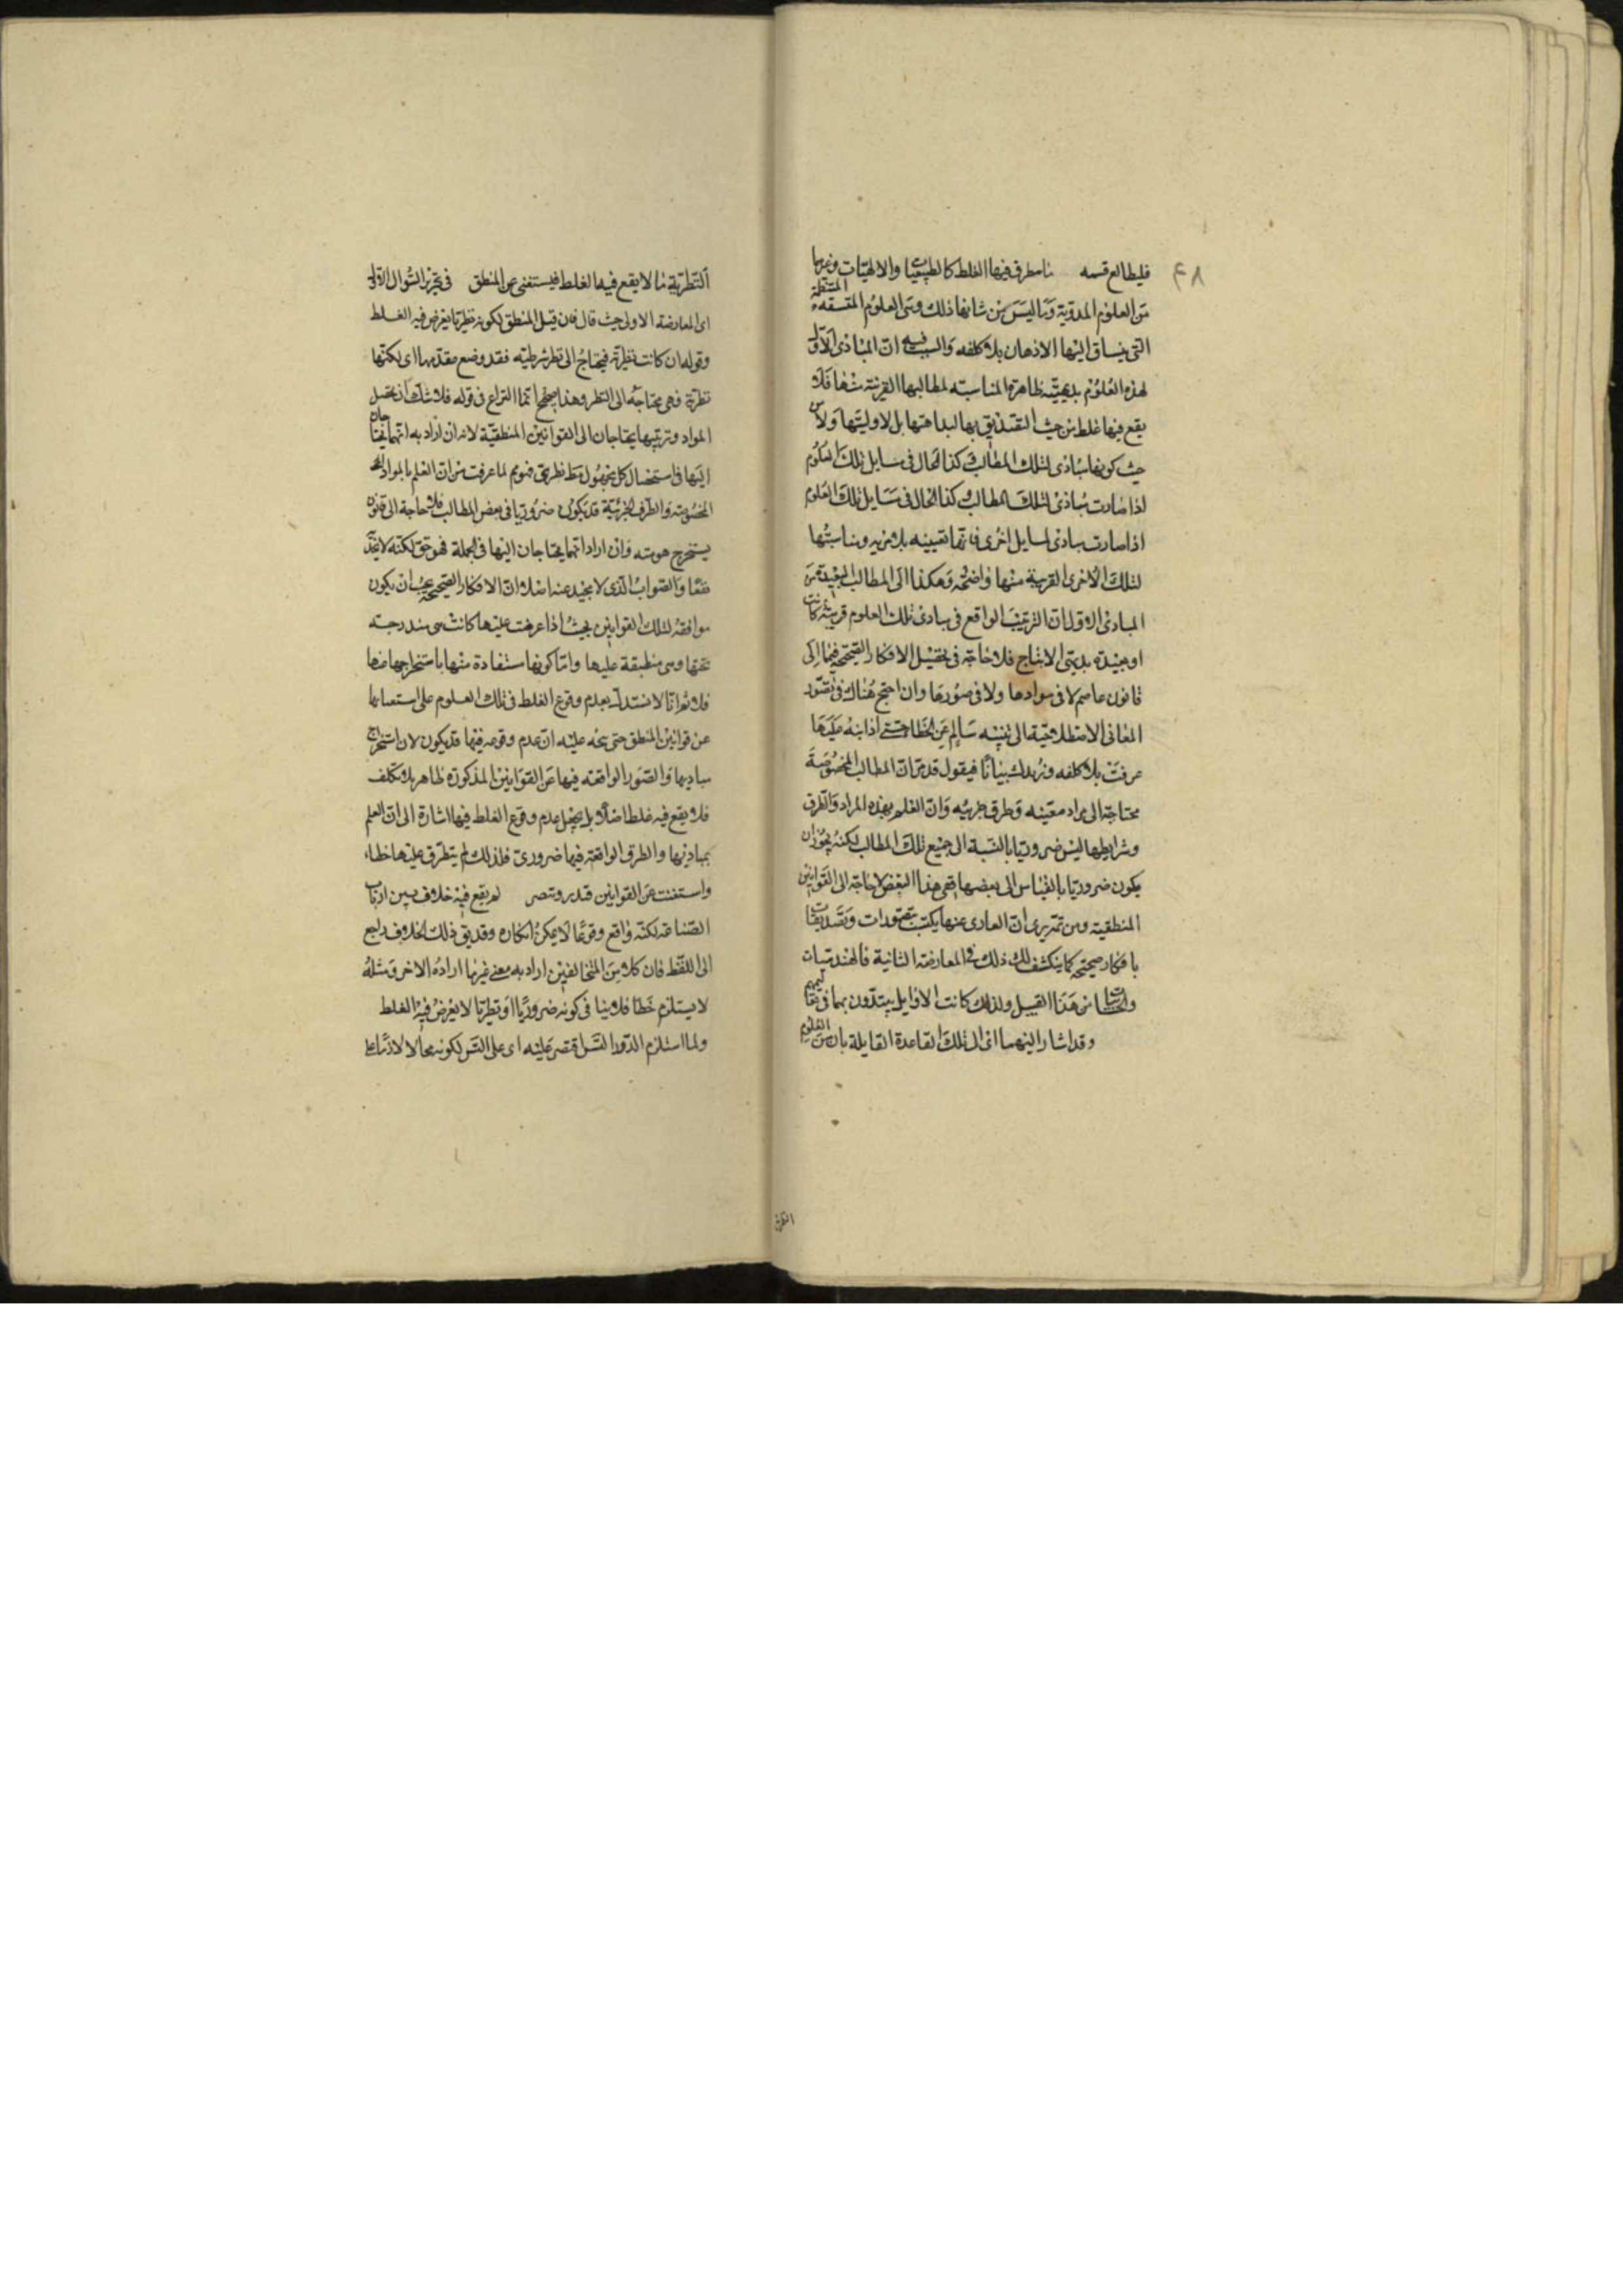 ٤٨
فليطالع قسمه ما يتطرق فيها الغلط كالطبيعيات والالهيات وغيرها
من العلوم المدونة وما ليس من شانها ذلك وهى العلوم المتسقة المنتظمة
التى ينساق اليها الاذهان بلا كلفه والسبب فيه ان المبادى الاول
لهذه العلوم بديهيته ظاهرة المناسبته لمطالبها القريبة منها فلا
يقع فيها غلط من حيث التصديق بها لبداهتها بل لاوليتها ولا من
حيث كونها مبادى لتلك المطالب وكذا الحال فى مسايل تلك العلوم
اذا صارت مبادى لتلك المطالب وكذا الحال فى مسايل تلك العلوم
اذا صارت مبادى لمسايل اخرى فانها تقينيه بلا مريه ومناسبتها
لتلك الاخرى القريبة منها واضحه وهكذا الى المطالب البعيدة من
المبادى الاول ان الترتيب الواقع فى مبادى تلك العلوم قريبة كانت
او بعيدة بديهى الانتاج فلا حاجة فى تحصيل الافكار الصحيحة فيها الى
قانون عاصم لا فى موادها ولا فى صورها وان احتج هناك فى تصور
المعانى الاصطلاحية الى تنبيه سالم عن الخطا حتى اذا نبه عليها
عرفت بلا كلفه ونزيدك بيانا فيقول قد مر ان المطالب المخصوصة
محتاجة الى مواد معينه وطرق جزئيه وان العلم بهذه المواد والطرق
وشرايطها ليس ضروريا بالنسبة الى جميع تلك المطالب لكنه يجوز ان
يكون ضروريا بالقياس الى بعضها ففى هذا البعض لا حاجة الى القوانين
المنطقية ومن ثم يرى ان العارى عنها يكتسب تصورات وتصديقات
بافكار صحيحة كما ينكشف لك ذلك فى المعارضة الثانية فالهندسيات
والحسابيات من هذا القبيل ولذلك كانت الاوايل يبتدون بهما فى تعاليمهم
وقد اشار اليهما اى الى تلك القاعدة القايلة بان من العلوم
النظرية
النظرية ما لا يقع فيها الغلط فيستغنى عن المنطق فى تحرير السوال الاول
اى المعارضة الاولى حيث قال فان قيل المنطق لكونه نظريا يعرض فيه الغلط
وقوله ان كانت نظرية فيحتاج الى نظر شرطيته فقد وضع مقدمها اى لكنها
نظرية فهى محتاجة الى النظر وهذا صحيح انما النزاع فى قوله فلا شك ان تحصيل
المواد وترتيبها يحتاجان الى القوانين المنطقية لانه ان اراد به انهما يحتاجان
اليها فى استحصال كل مجهول نظرى فهو مم لما عرفت من ان العلم بالمواد
المخصوصة والطرق الجزئية قد يكون ضروريا فى بعض المطالب فلا حاجة الى قانون
يستخرج هو منه وان اراد انهما يحتاجان اليها فى الجملة فهو حق لكنه لا يجدى
نفعا والصواب الذى لا محيد عنه اصلا ان الافكار الصحيحة يجب ان يكون
موافقة لتلك القوانين بحيث اذا عرضت عليها كانت هى مندرجته
تحتها وهى منطبقة عليها واما كونها مستفادة منها باستخراجها منها
فلا ثم انا لا نستدل بعدم وقوع الغلط فى تلك العلوم على استغنائها
عن قوانين المنطق حتى يتجه عليه ان عدم وقوعه فيها قد يكون لان استخراج
مباديها والصور الواقعته فيها عن القوانين المذكورة ظاهر بلا تكلف
فلا يقع فيه غلط اصلا بل يجعل عدم وقوع الغلط فيها اشارة الى ان العلم
بمباديها والطرق الواقعة فيها ضرورى فلذلك لم يتطرق عليها خطاء
واستغنت عن القوانين فتدبر وتبصر لم يقع فيه خلاف بين ارباب
الصناعة لكنه واقع وقوعا لا يمكن انكاره وقد يق ذلك الخلاف راجع
الى اللفظ فان كلا من المتخالفين اراد به معنى غير ما اراده الاخر ومثله
لا يستلزم خطا فلا ينافى كونه ضروريا او نظريا لا يعرض فيه الغلط
ولما استلزم الدور التسل اقتصر عليه اى على التس لكونه محالا لازما على